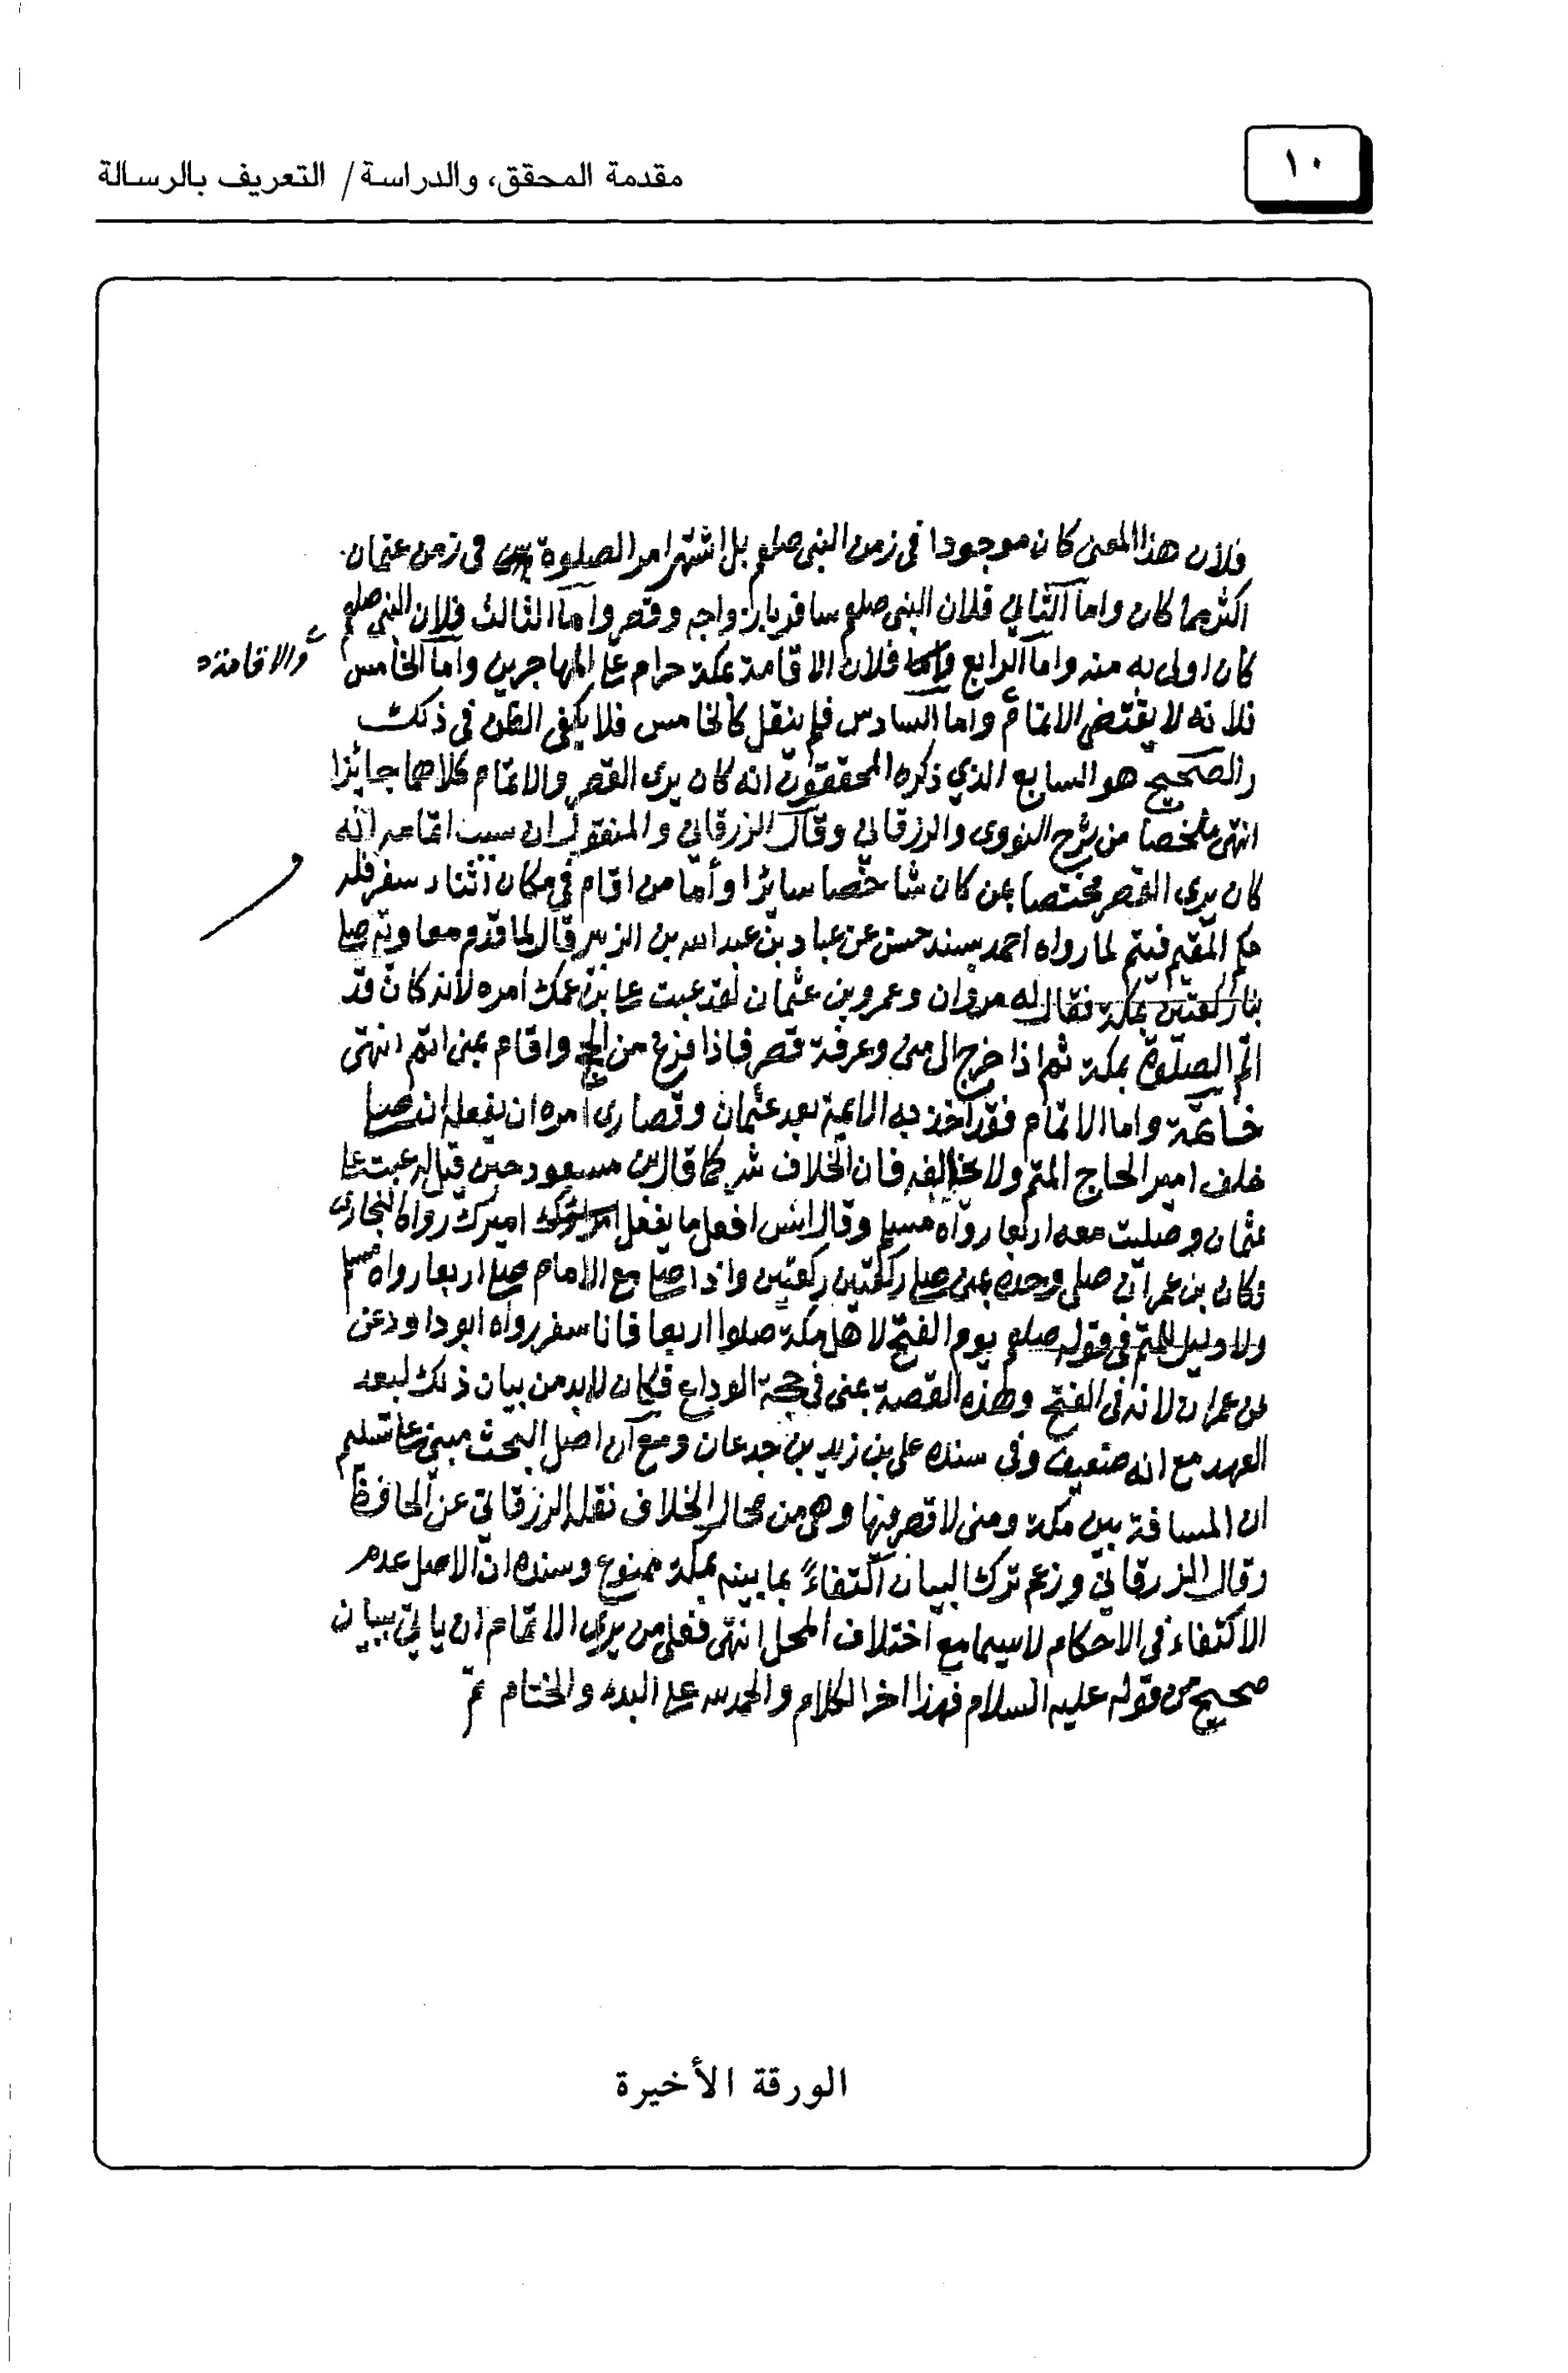 ١٠
مقدمة المحقق، والدراسة / التعريف بالرسالة
فلان هذا المعنى كان موجودا في زمن النبي صلعم بل اشتهر امر الصلوة في زمن عثمان
اكثر مما كان واما الثاني فلان النبي صلعم سافر بازواجه وقصر واما الثالث فلان النبي صلعم
كان اولى به منه واما الرابع فلان الاقامة بمكة حرام على المهاجرين واما الخامس
والاقامة
فلانه لا يقتضى الاتمام واما السادس فلم ينقل كالخامس فلا يكفى الظن في ذلك
والصحيح هو السابع الذي ذكره المحققون انه كان يرى القصر والاتمام كلاهما جائزا
انتهى ملخصا من شرح النووى والزرقاني وقال الزرقاني والمنقول ان سبب اتمامه انه
كان يرى القصر مختصا بمن كان شاخصا سائرا وأما من اقام في مكان اثناء سفر فله
حكم المقيم فيتم لما رواه احمد بسند حسن عن عباد بن عبد الله بن الزبير قال لما قدم معاوية صلى
بنا ركعتين بمكة فقال له مروان وعمرو بن عثمان لقد عبت على ابن عمك امره لأنه كان قد
اتم الصلوة بمكة ثم اذا خرج الى منى وعرفة قصر فاذا فرغ من الحج واقام بمنى اتم انتهى
خاتمة واما الاتمام فقد أخذ به الائمة بعد عثمان وقصارى أمره ان يفعله ان صلى
خلف امير الحاج المتم ولا يخالفه فان الخلاف شر كما قال بن مسعود حين قيل له عبت على
عثمان وصليت معه اربعا رواه مسلم وقال انس افعل ما يفعل اميرك رواه البخارى
وكان بن عمر ان صلى وحده بمنى صلى ركعتين ركعتين واذا صلى مع الامام صلى اربعا رواه مسلم
ولا دليل للمتم في قوله صلعم يوم الفتح لاهل مكة صلوا اربعا فانا سفر رواه ابو داود عن
عن عمران لانه في الفتح وهذه القصة بمنى في حجة الوداع فكان لابد من بيان ذلك لبعد
العهد مع انه ضعيف وفي سنده على بن زيد بن جدعان ومع أن اصل البحث مبني على تسليم
ان المسافة بين مكة ومنى لا قصر فيها وهى من محال الخلاف نقله الزرقاني عن الحافظ
وقال الزرقاني وزعم ترك البيان اكتفاءً بما بينه بمكة ممنوع وسنده ان الاصل عدم
الاكتفاء في الاحكام لاسيما مع اختلاف المحل انتهى فعلى من يرى الاتمام ان يأتي ببيان
صحيح من قوله عليه السلام فهذا اخر الكلام والحمد لله على البدء والختام تم
الورقة الأخيرة